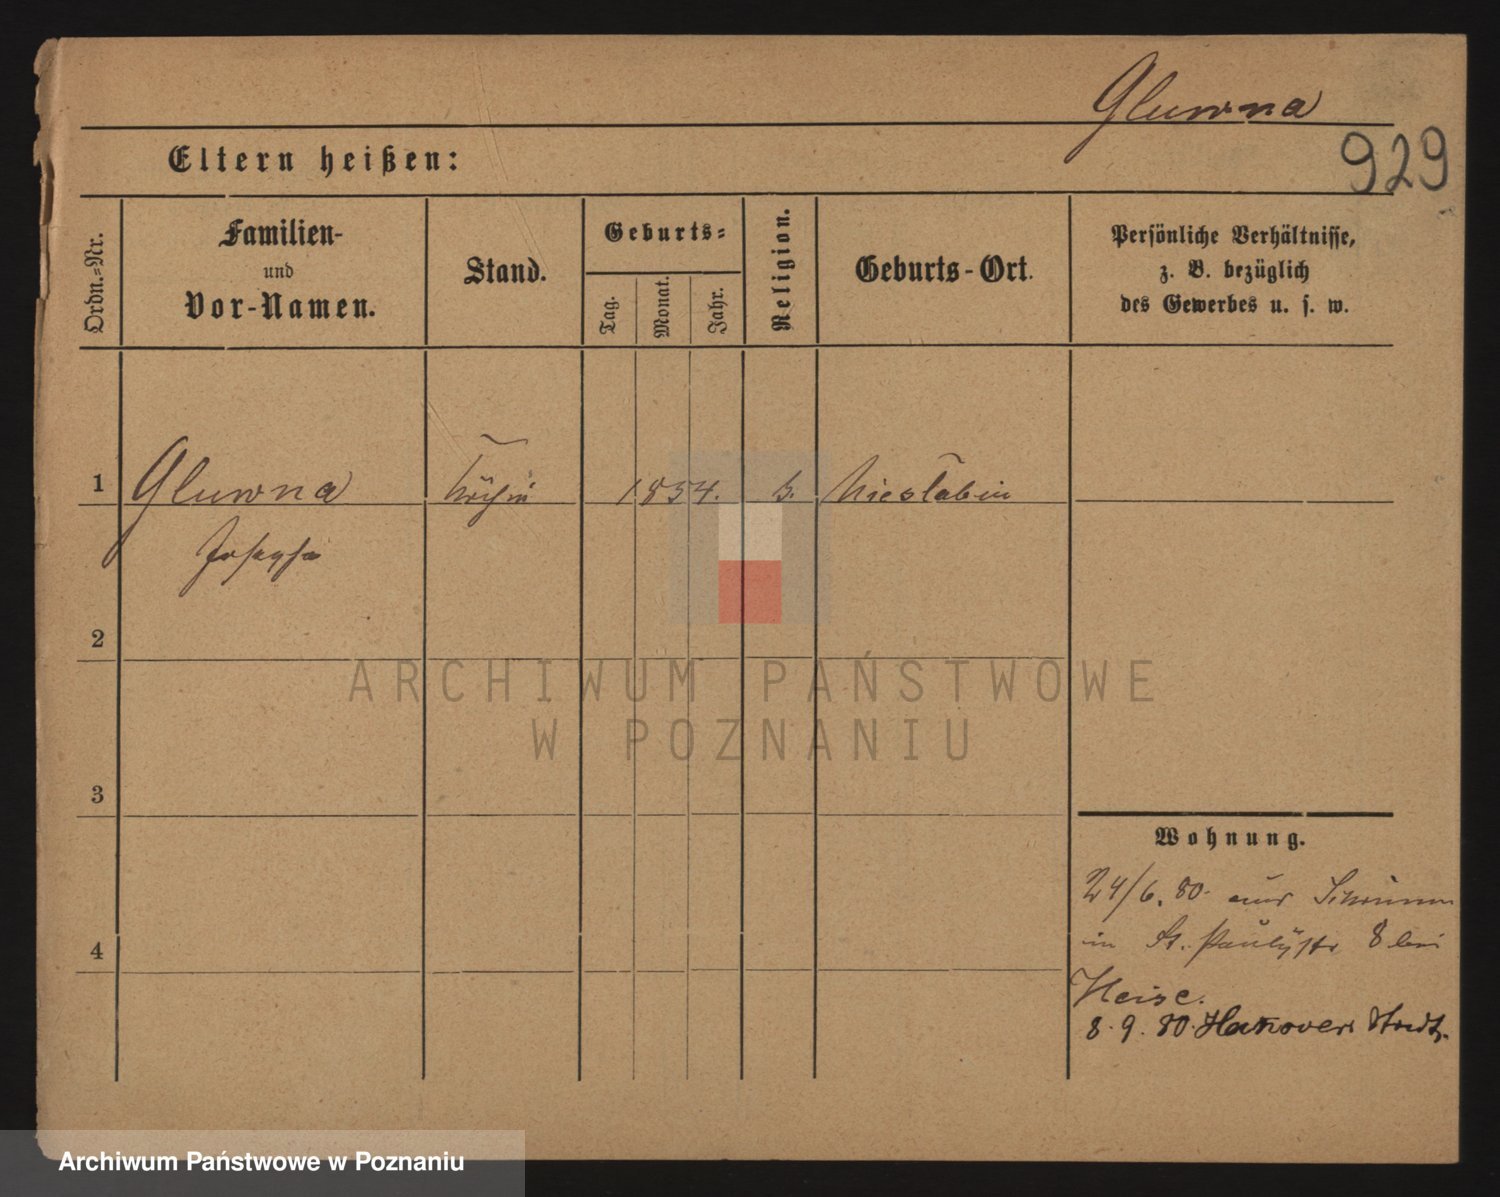 Gluwna
929
Eltern heißen:
Ordn.-Nr.
Familien-
und
Vor-Namen.
Stand.
Geburts-
Tag.
Monat.
Jahr.
Religion.
Geburts-Ort.
Persönliche Verhältnisse,
z. B. bezüglich
des Gewerbes u. s. w.
1 Gluwna Köchin 1854. k. Nieslabin
Josepha
2
ARCHIWUM PAŃSTWOWE
W POZNANIU
3
Wohnung.
24/6. 80. aus Schrimm
4
in St. Paulistr 8 bei
Heise.
8. 9. 80. Hanover
Archiwum Państwowe w Poznaniu